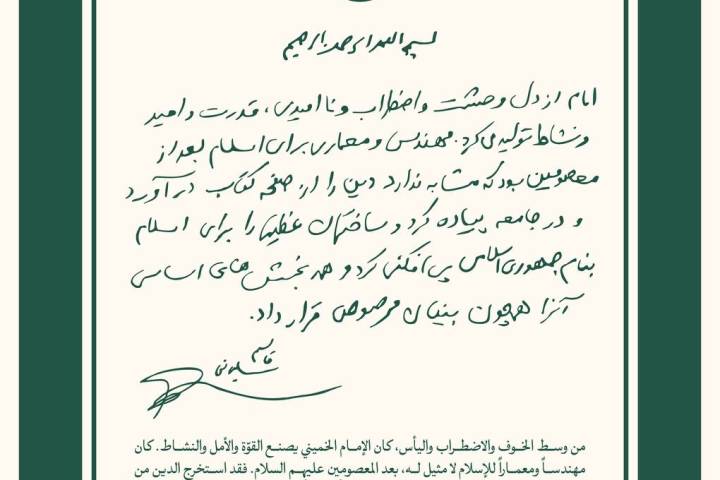 بسم الله الرحمن الرحیم
امام از دل وحشت و اضطراب و ناامیدی، قدرت و امید
و نشاط تولید می‌کرد. مهندس و معماری برای اسلام بعد از
معصومین بود که مشابه ندارد دین را از صفحه کتاب درآورد
و در جامعه پیاده کرد و ساختمان عظیمی را برای اسلام
بنام جمهوری اسلامی پی افکنی کرد و همه بخش‌های اساسی
آنرا همچون بنیان مرصوص قرار داد.
قاسم
سلیمانی
من وسط الخوف والاضطراب واليأس، كان الإمام الخميني يصنع القوّة والأمل والنشاط. كان
مهندساً ومعماراً للإسلام لا مثيل له، بعد المعصومين عليهم السلام. فقد استخرج الدين من